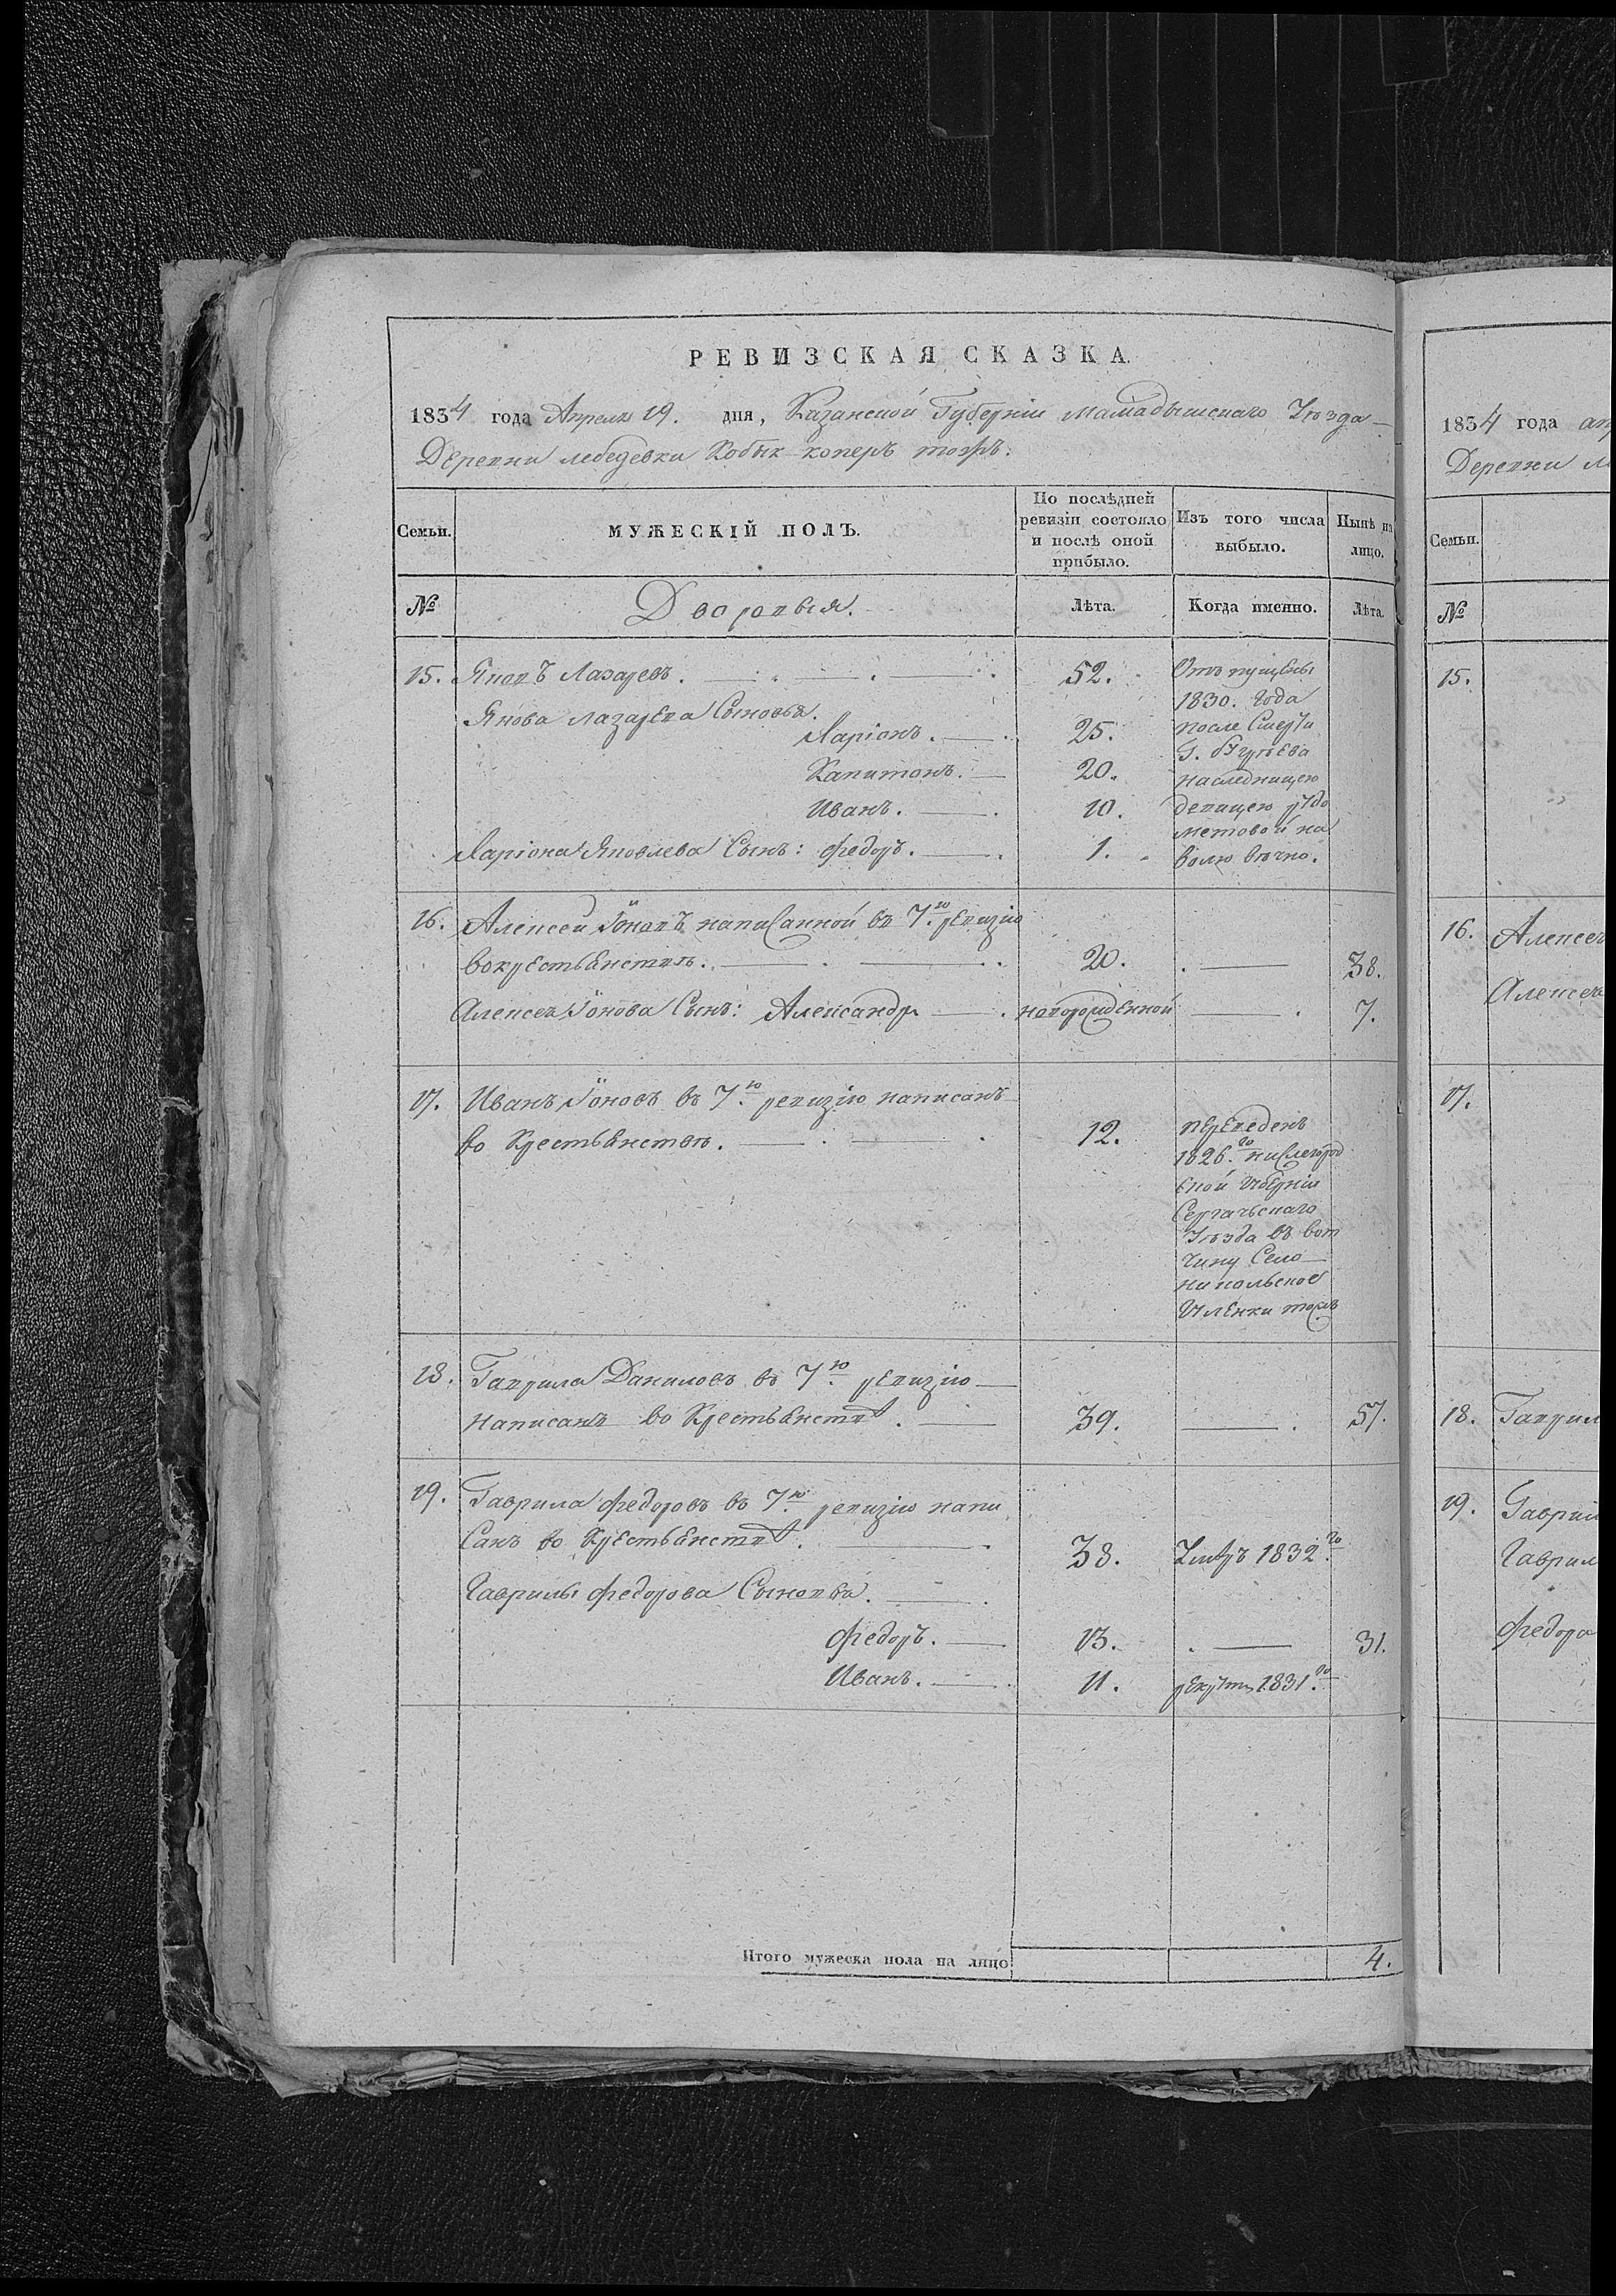 РЕВИЗСКАЯ СКАЗКА.
1834 года Апреля 19. дня, Казанской Губерніи Мамадышскаго Уѣзда
Деревни лебедевки Кобык-коперъ тожъ.
Семьи. МУЖЕСКІЙ ПОЛЪ. По послѣдней ревизіи состояло и послѣ оной прибыло. Изъ того числа выбыло. Нынѣ на лицо.
№ Дворовыя. Лѣта. Когда именно. Лѣта.
15. Яковъ Лазаревъ. 52. Отпущены
1830. года
Якова лазарева Сыновья.
Ларіонъ. 25. после Смерти
Г.
Капитонъ. 20. наследницею
Иванъ. 10. девицею
метовой на
Ларіона Яковлева Сынъ: Федоръ. 1. волю вечно.
16. Алексей Іоновъ написанной въ 7.ю ревизію
вокрестьянствѣ. 20. 38.
Алексея Іонова Сынъ: Александръ новорожденной 7.
17. Иванъ Іоновъ въ 7.ю ревизію написанъ
во Крестьянствѣ. 12. переведенъ
1826.го нижегород
ской губерніи
Сергачьскаго
Уѣзда въ вот
чину Село
никольское
тожъ
18. Гаврила Даниловъ въ 7.ю ревизію
написанъ во Крестьянствѣ. 39. 57.
19. Гаврила Федоровъ въ 7.ю ревизію напи
Санъ во Крестьянствѣ. 38. Умеръ 1832.го
Гаврилы Федорова Сыновья.
Федоръ. 13. 31.
Иванъ. 11. рекрутъ 1831.го
Итого мужеска пола на лицо 4.
1834 года
Деревни
Семьи.
№
15.
16. Алексея
Алексея
17.
18. Гаврил
19. Гаврил
Гаврил
Федора